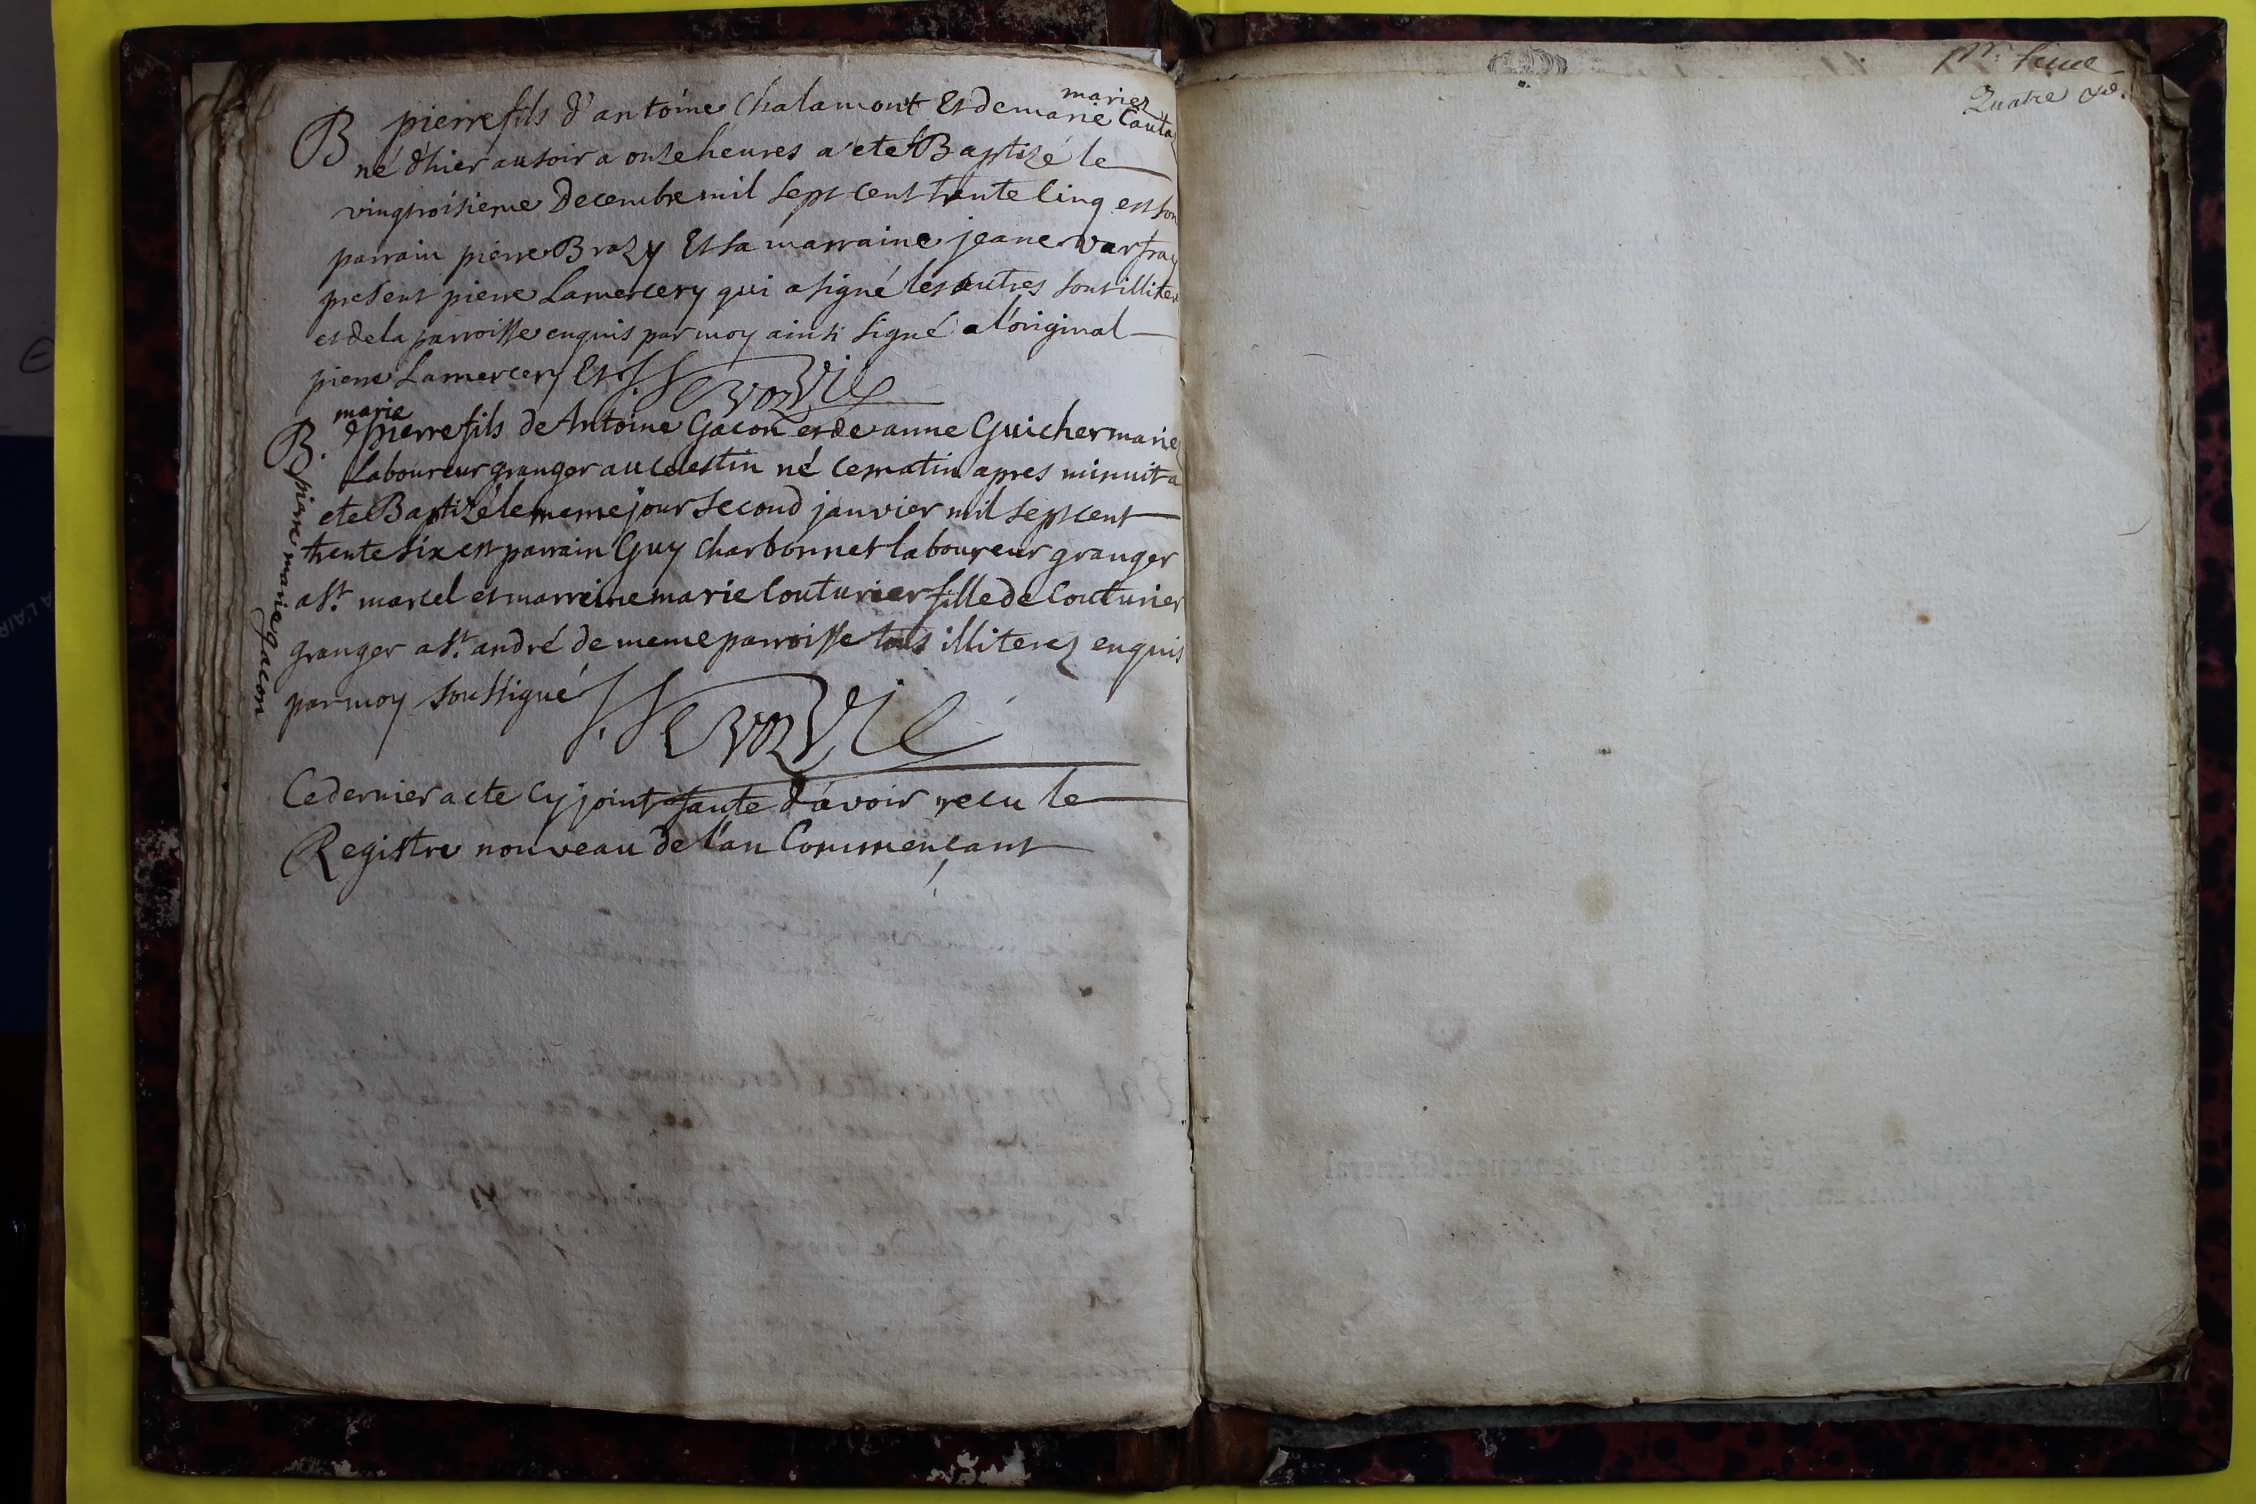 mariez
B pierre fils d'antoine Chalamont Et de marie Cauta
né d'hier au soir a onze heures a eté Baptizé le
vingtroisieme Decembre mil sept cent trente cinq est son
parrain pierre Brazy Et sa marraine jeane varfray
present pierre Lamercery qui a signé les autres sont illiter
et de la parroisse enquis par moy ainsi signé a l'original
pierre Lamercery Et
marie
B. pierre fils de Antoine Gacon et de anne Guicher marie
Laboureur granger au celestin né ce matin apres minuit a
eté Baptizé le meme jour second janvier mil sept cent
trente six est parrain Guy Charbonnet laboureur granger
a St. marcel et marreine marie Couturier fille de Couturier
granger a St. andré de meme parroisse tous illiterez enquis
par moy soussigné
pierre marie gacon
Ce dernier acte cy joint faute d'avoir recu le
Registre nouveau de l'an Commençant
Quatre